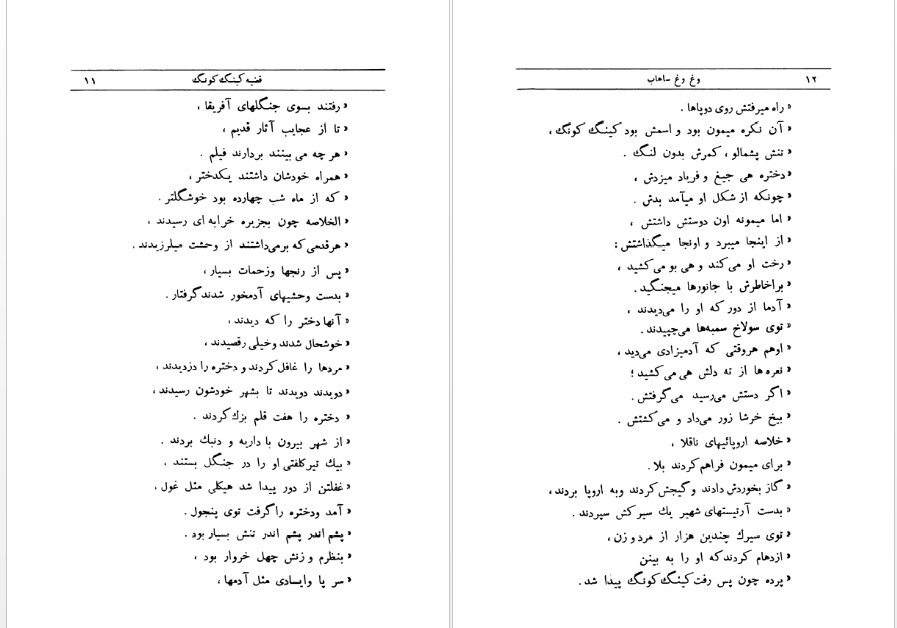 قضیه کینگ کونگ ۱۱
« رفتند بسوی جنگلهای آفریقا ،
« تا از عجایب آثار قدیم ،
« هر چه می بینند بردارند فیلم .
« همراه خودشان داشتند یکدختر ،
« که از ماه شب چهارده بود خوشگلتر .
« الخلاصه چون بجزیره خرابه ای رسیدند ،
« هرقدمی که برمی‌داشتند از وحشت میلرزیدند .
« پس از رنجها وزحمات بسیار ،
« بدست وحشیهای آدمخور شدند گرفتار .
« آنها دختر را که دیدند ،
« خوشحال شدند وخیلی رقصیدند ،
« مردها را غافل کردند و دختره را دزدیدند ،
« دویدند دویدند تا بشهر خودشون رسیدند ،
« دختره را هفت قلم بزك کردند .
« از شهر بیرون با داریه و دنبك بردند .
« بیك تیرکلفتی او را در جنگل بستند .
« غفلتن از دور پیدا شد هیکلی مثل غول .
« آمد ودختره را گرفت توی پنجول .
« پشم اندر پشم اندر تنش بسیار بود .
« بنظرم وزنش چهل خروار بود ،
« سر پا وایسادی مثل آدمها ،
۱۲ وغ وغ ساهاب
« راه میرفتش روی دوپاها .
« آن نکره میمون بود و اسمش بود کینگ کونگ ،
« تنش پشمالو ، کمرش بدون لنگ .
« دختره هی جیغ و فریاد میزدش ،
« چونکه از شکل او میآمد بدش .
« اما میمونه اون دوستش داشتش ،
« از اینجا میبرد و اونجا میگذاشتش :
« رخت او می‌کند و هی بو می‌کشید ،
« براخاطرش با جانورها میجنگید .
« آدما از دور که او را می‌دیدند ،
« توی سولاخ سمبه‌ها می‌چپیدند .
« اوهم هروقتی که آدمیزادی می‌دید ،
« نعره ها از ته دلش هی می‌کشید ؛
« اگر دستش می‌رسید می‌گرفتش .
« بیخ خرشا زور می‌داد و می‌کشتش .
« خلاصه اروپائیهای ناقلا ،
« برای میمون فراهم کردند بلا .
« گاز بخوردش دادند و گیجش کردند وبه اروپا بردند ،
« بدست آرتیستهای شهیر یك سیرکش سپردند .
« توی سیرك چندین هزار از مرد و زن ،
« ازدهام کردند که او را به بینن
« پرده چون پس رفت کینگ کونگ پیدا شد .